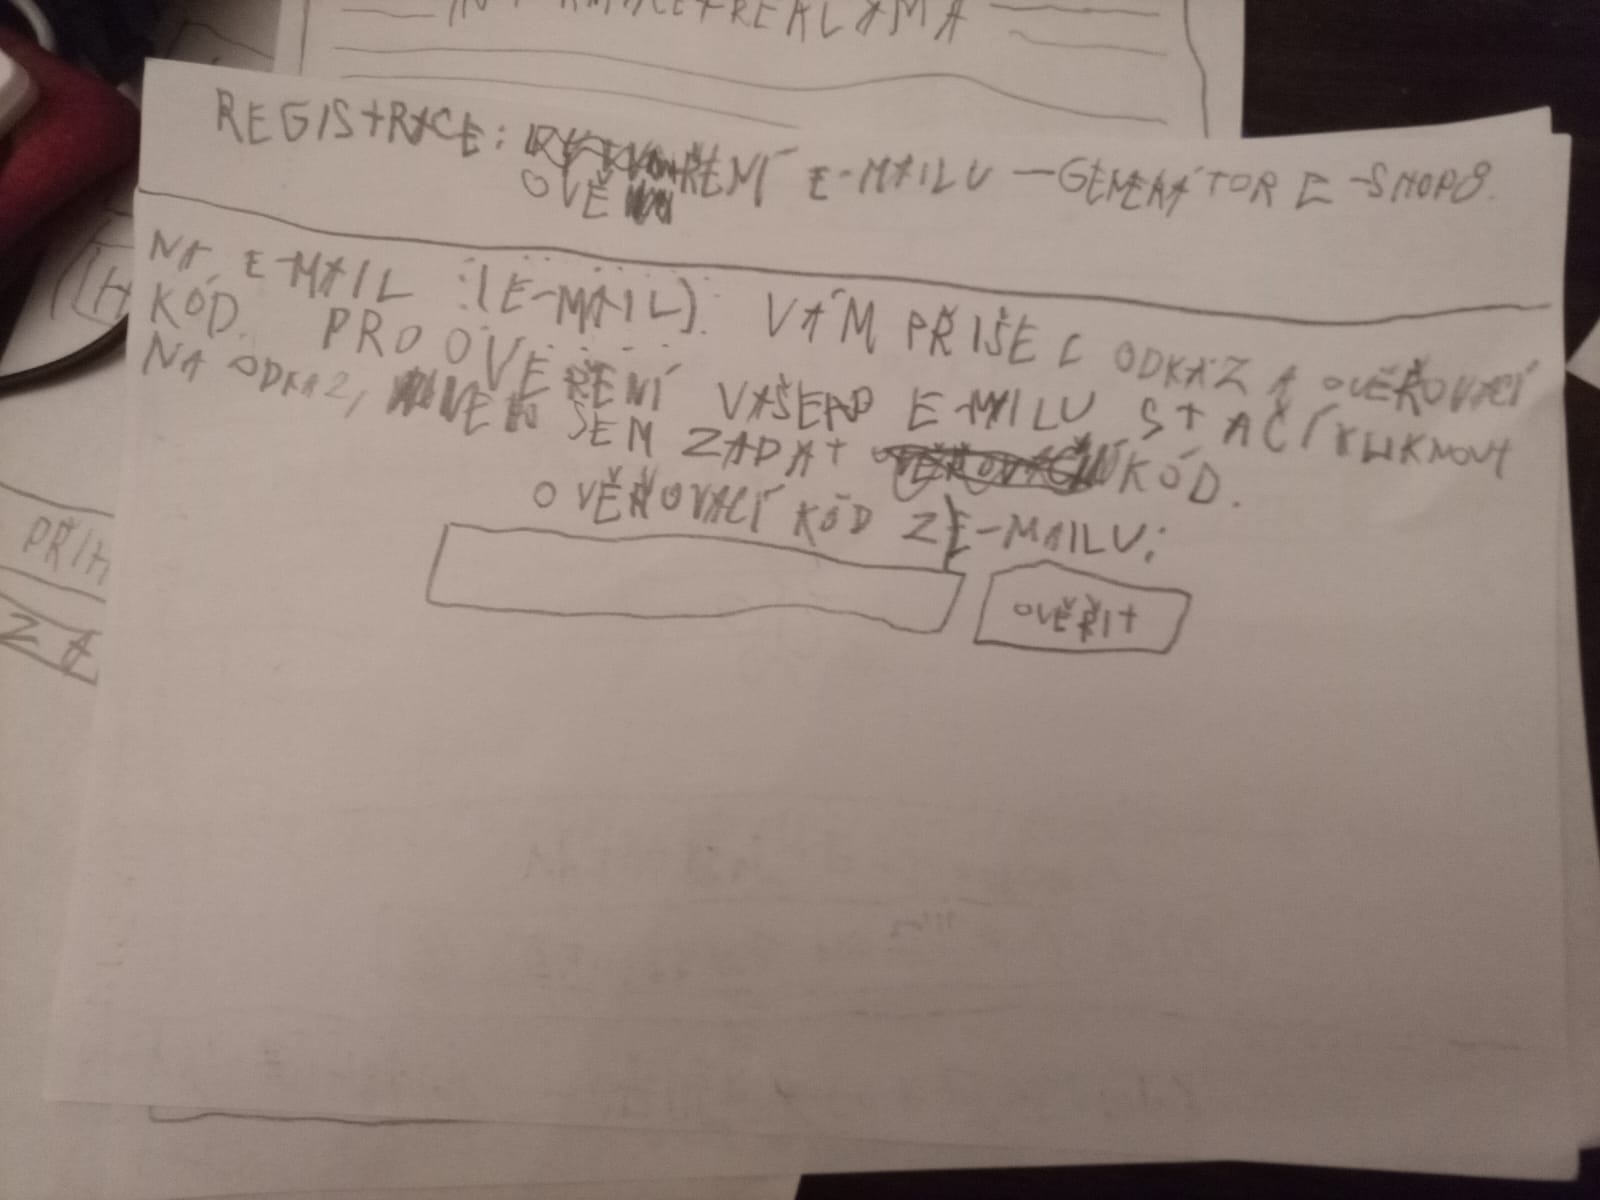 INFORMACE+REKLAMA
REGISTRACE: OVĚŘENÍ E-MAILU — GENERÁTOR E-SHOPŮ.
NA E-MAIL (E-MAIL) VÁM PŘIŠEL ODKAZ A OVĚŘOVACÍ
KÓD. PRO OVĚŘENÍ VAŠEHO E-MAILU STAČÍ KLIKNOUT
NA ODKAZ, SEM ZADAT KÓD.
OVĚŘOVACÍ KÓD Z E-MAILU:
OVĚŘIT
PŘIH
ZA